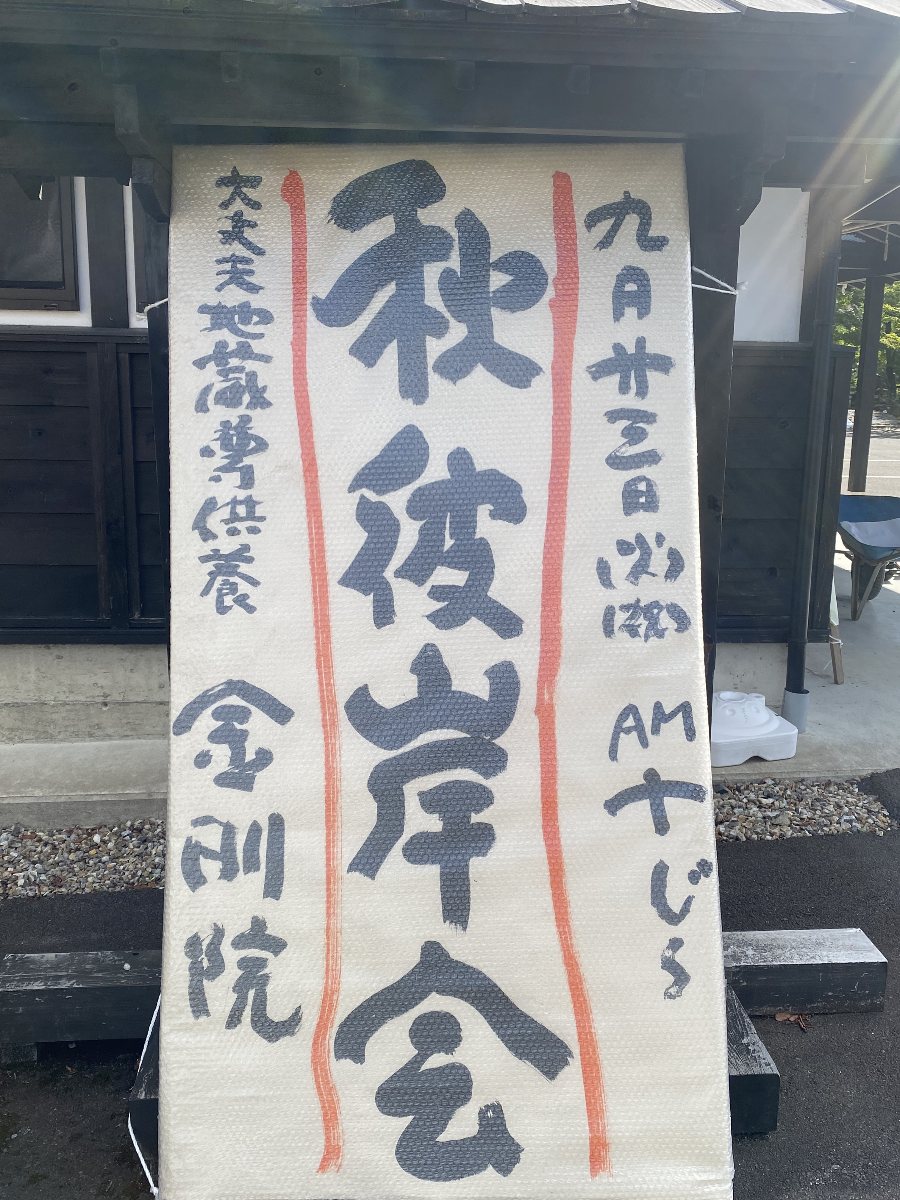 九月廿三日(火)(祝) AM十じ〜
秋彼岸会
大丈夫地蔵尊供養 金剛院